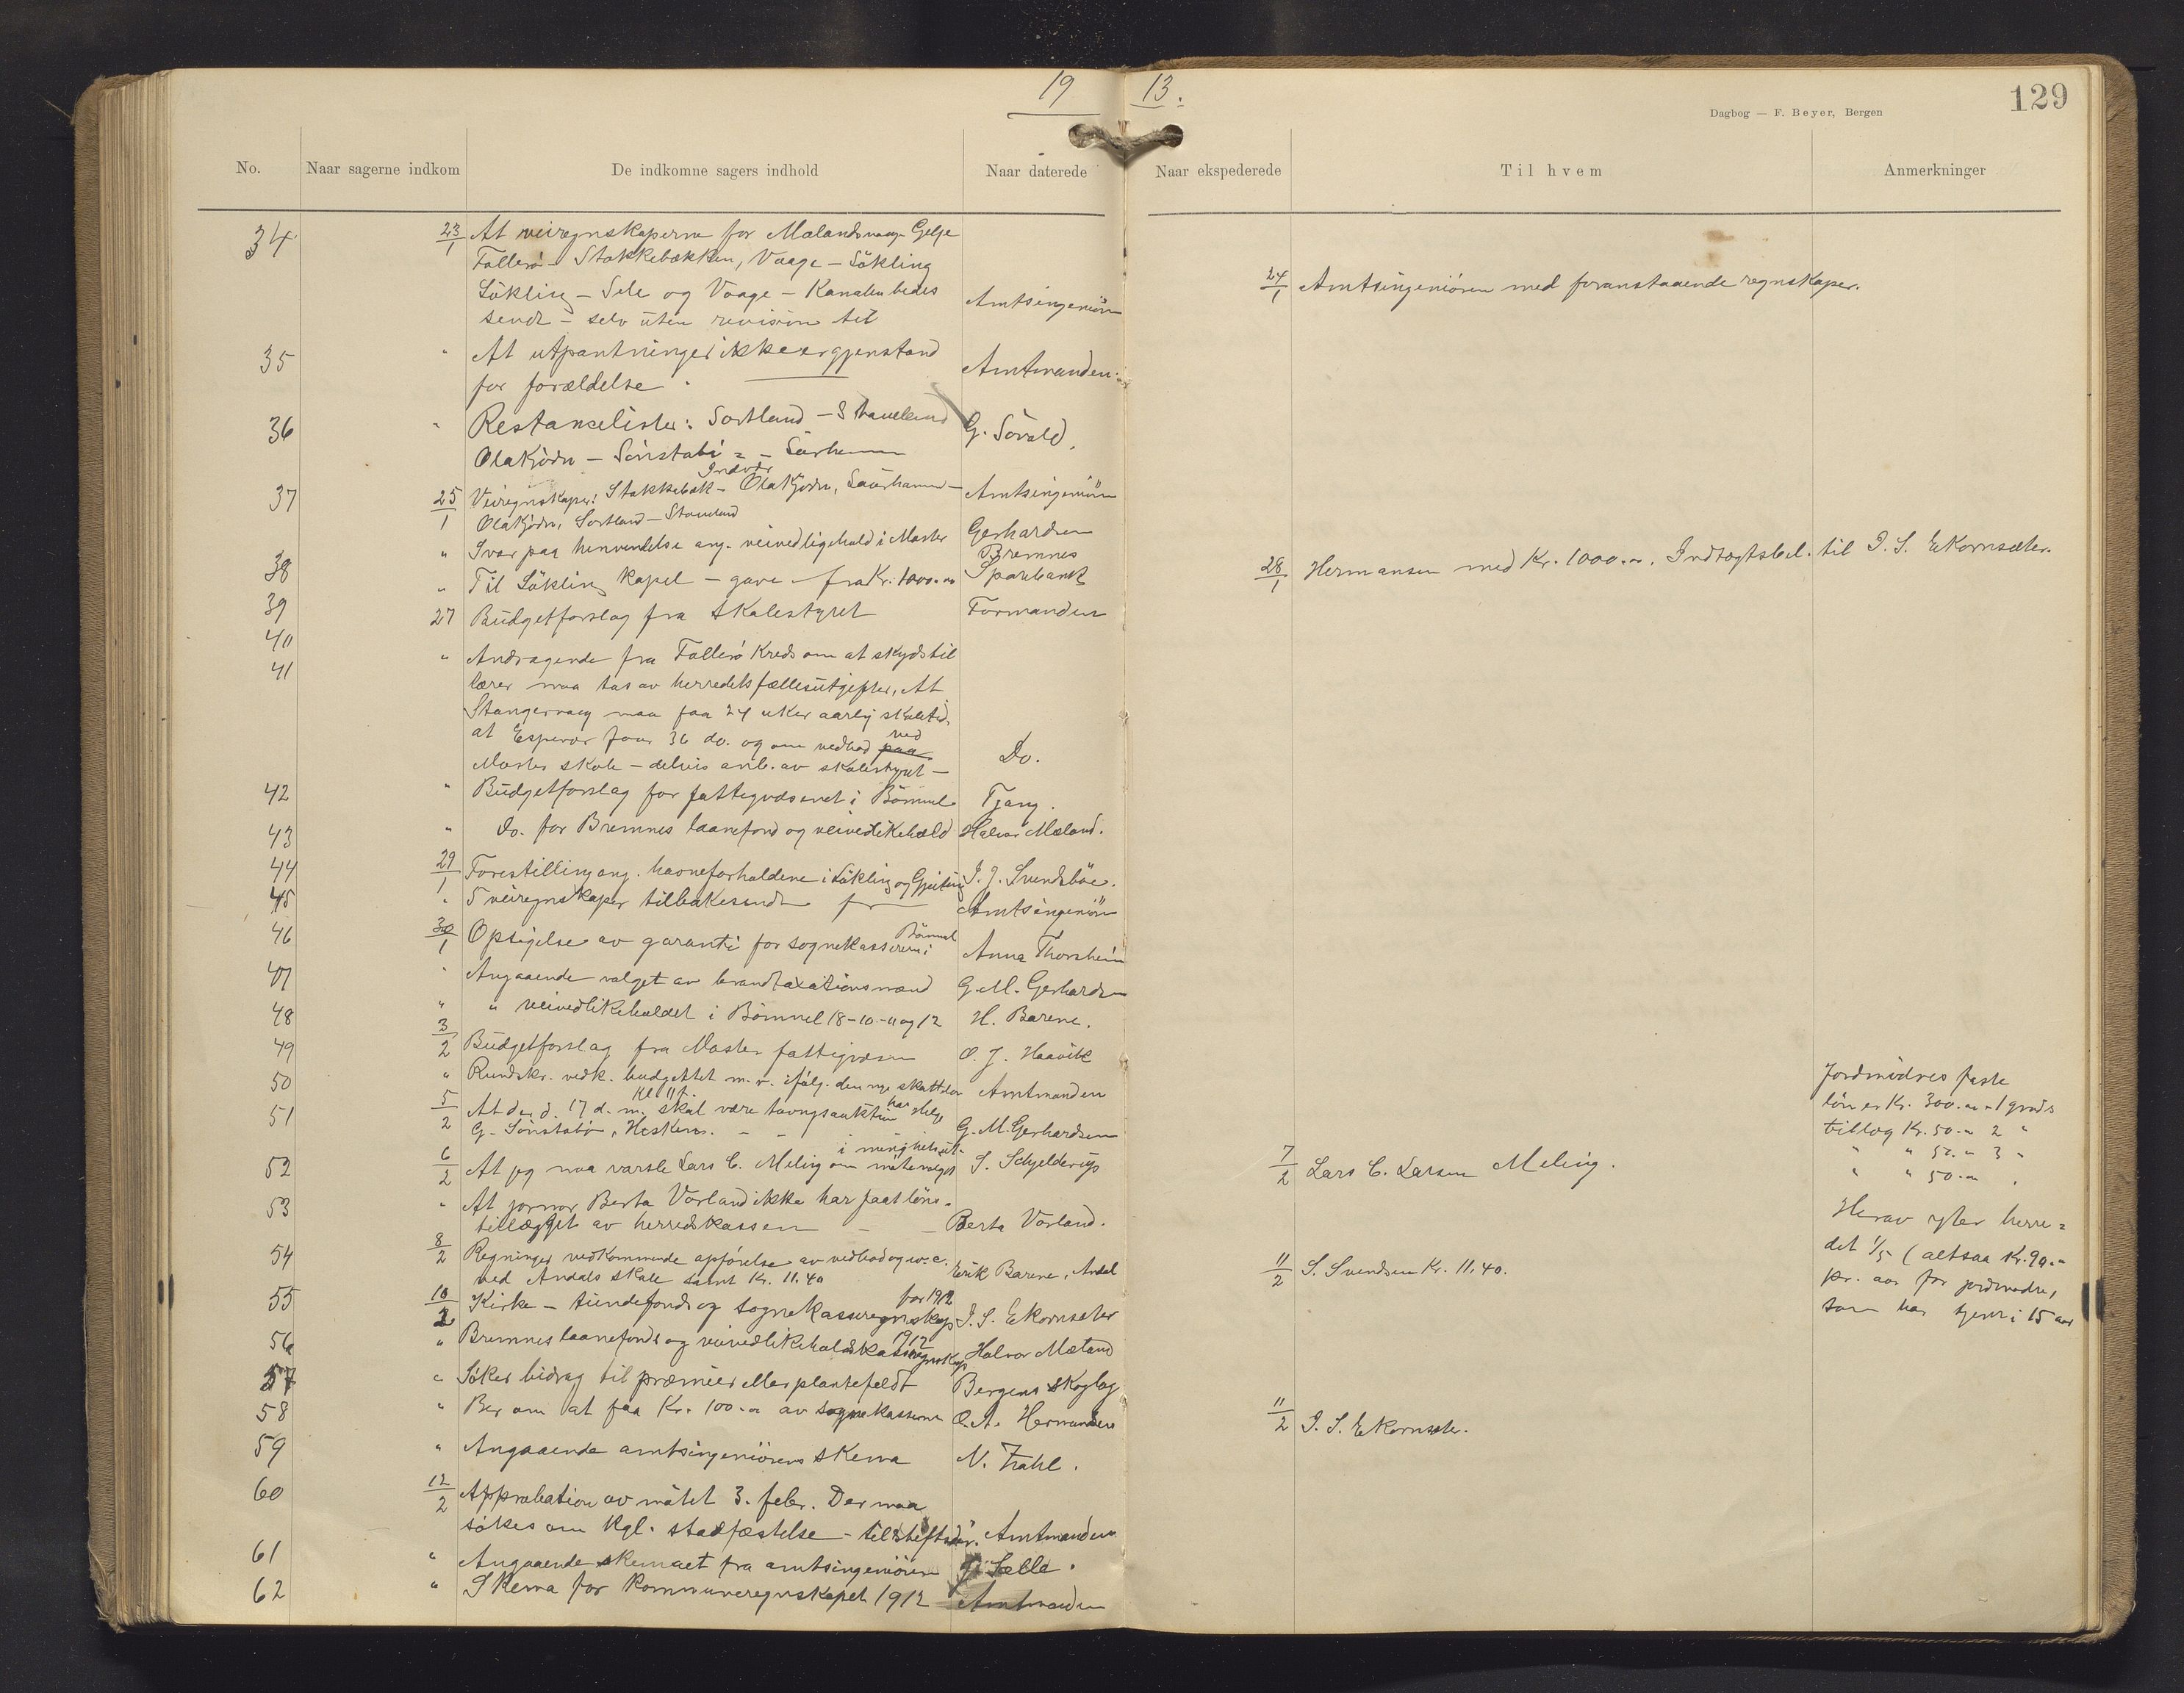 19 13.
129
Dagbog — F. Beyer, Bergen
No. Naar sagerne indkom De indkomne sagers indhold Naar daterede Naar ekspederede Til hvem Anmerkninger
34 23/1 At veiregnskaperne for Mælandsvaag - Gelje
Follerö - Stokkebækken, Vaage - Lökling
Lökling - Sele og Vaage - Kanalen bedes
sendt - selv uten revision til Amtsingeniören 24/1 Amtsingeniören med foranstaaende regnskaper.
35 " At utpantninger ikke er gjenstand
for forældelse. Amtmanden
36 " Restancelister: Sortland - Staveland G. Sövold.
Olakjödn - Sönstabö -
37 25/1 Veiregnskaper: Stokkebæk - Indvær Olakjödn, - Amtsingeniören
Olakjödn, Sortland - Staveland
38 " Svar paa henvendelse ang. veivedligehold i Moster Gerhardsen
39 " Til Lökling Kapel - gave - fra Kr. 1000.00 Bremnes Sparebank 28/1 Hermansen med Kr. 1000.00. Indtægtsbel. til I. S. Ekornsæter.
40 27 Budgetforslag fra skolestyret Formanden
41 " Andragende fra Follerö Kreds om at skyds til
lærer maa tas av herredets fællesutgifter, At
Stangervaag maa faa 24 uker aarlig skoletid,
at Espevær faar 36 do. og om vedhod paa ved
Moster skole - delvis anb. av skolestyret - Do.
42 " Budgetforslag for fattigvæsenet i Bömmel Tjang.
43 " do. for Bremnes laanefond og veivedlikehold Halvor Mæland.
44 29/1 Forestilling ang. havneforholdene i Lökling og I. J. Svendsböe.
45 " 5 veiregnskaper tilbakesendt fr Amtsingeniören
46 30/1 Opsigelse av garanti for sognekassereren i Bömmel Anna Thorsheim
47 " Angaaende valget av brandtaxationsmænd G. M. Gerhardsen
48 " " veivedlikeholdet i Bömmel 18-10-11 og 12 H. Barene.
49 3/2 Budgetforslag fra Moster fattigvæsen O. J. Haavik
50 " Rundskr. vedk. budgettet m. v. ifölg. den nye skattelov Amtmanden
51 5/2 At der d. 17 d. m. kl 11 f. skal være tvangsauktion hos Helge
G. Sönstabö, Hisken. - - G. M. Gerhardsen
52 6/2 At jeg maa varsle Lars C. Meling om S. Schjelderup 7/2 Lars C. Larsen Meling.
53 " At jormor Berta Vorland ikke har faat löns-
tillægget av herredskassen - - Berta Vorland.
Jordmödres faste
lön er Kr. 300.00 - 1 grads
tillæg Kr. 50.00 2 "
" " 50.00 3 "
" " 50.00 "
Herav yter herre-
det 1/5 (altsaa Kr. 90.-
pr. aar for jordmødre,
som har tjent i 15 aar
54 8/2 Regninger vedkommende opförelse av vedbod og w.c.
ved Andals skole samt Kr. 11.40 Erik Barene, Andal 11/2 S. Svendsen Kr. 11.40.
55 10/2 Kirke - tiendefonds og sognekasseregnskap for 1912 I. S. Ekornsæter
56 " Bremnes laanefonds og veivedlikeholdskasseregnskap 1912 Halvor Mæland
57 " Söker bidrag til præmier eller plantefeldt Bergens Skoglag
58 " Ber om at faa Kr. 100.00 av sognekasseren O. A. Hermansen 11/2 I. S. Ekornsæter.
59 " Angaaende amtsingeniörens skema N. Zahl.
60 12/2 Approbation av mötet 3. febr. Der maa
sökes om Kgl. stadfæstelse - Amtmanden
61 " Angaaende skemaet fra amtsingeniören Sælle.
62 " Skema for kommuneregnskapet 1912 Amtmanden